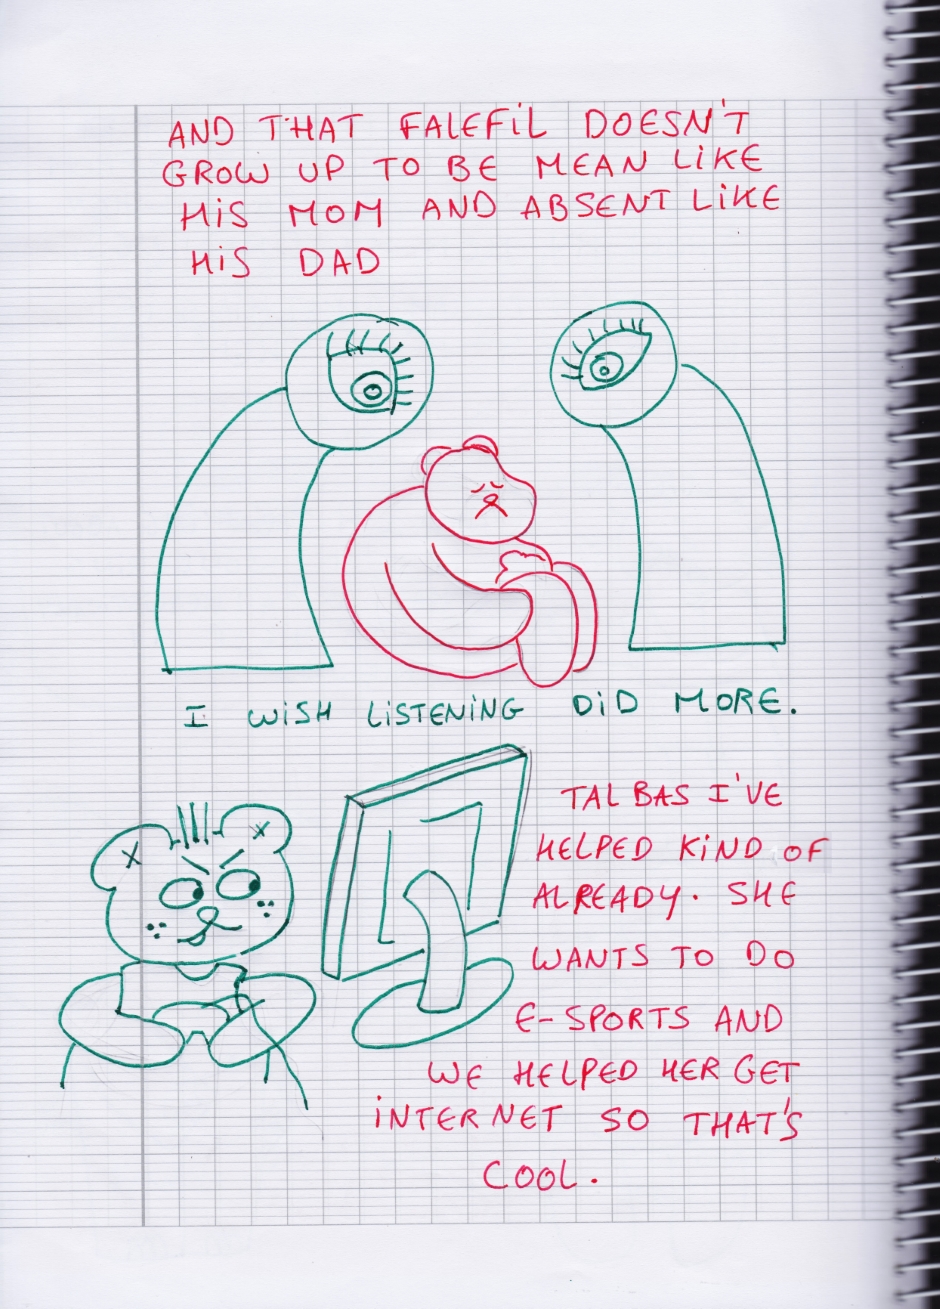 AND THAT FALEFIL DOESN'T
GROW UP TO BE MEAN LIKE
HIS MOM AND ABSENT LIKE
HIS DAD
I WISH LISTENING DID MORE.
TAL BAS I'VE
HELPED KIND OF
ALREADY. SHE
WANTS TO DO
E-SPORTS AND
WE HELPED HER GET
INTERNET SO THAT'S
COOL.